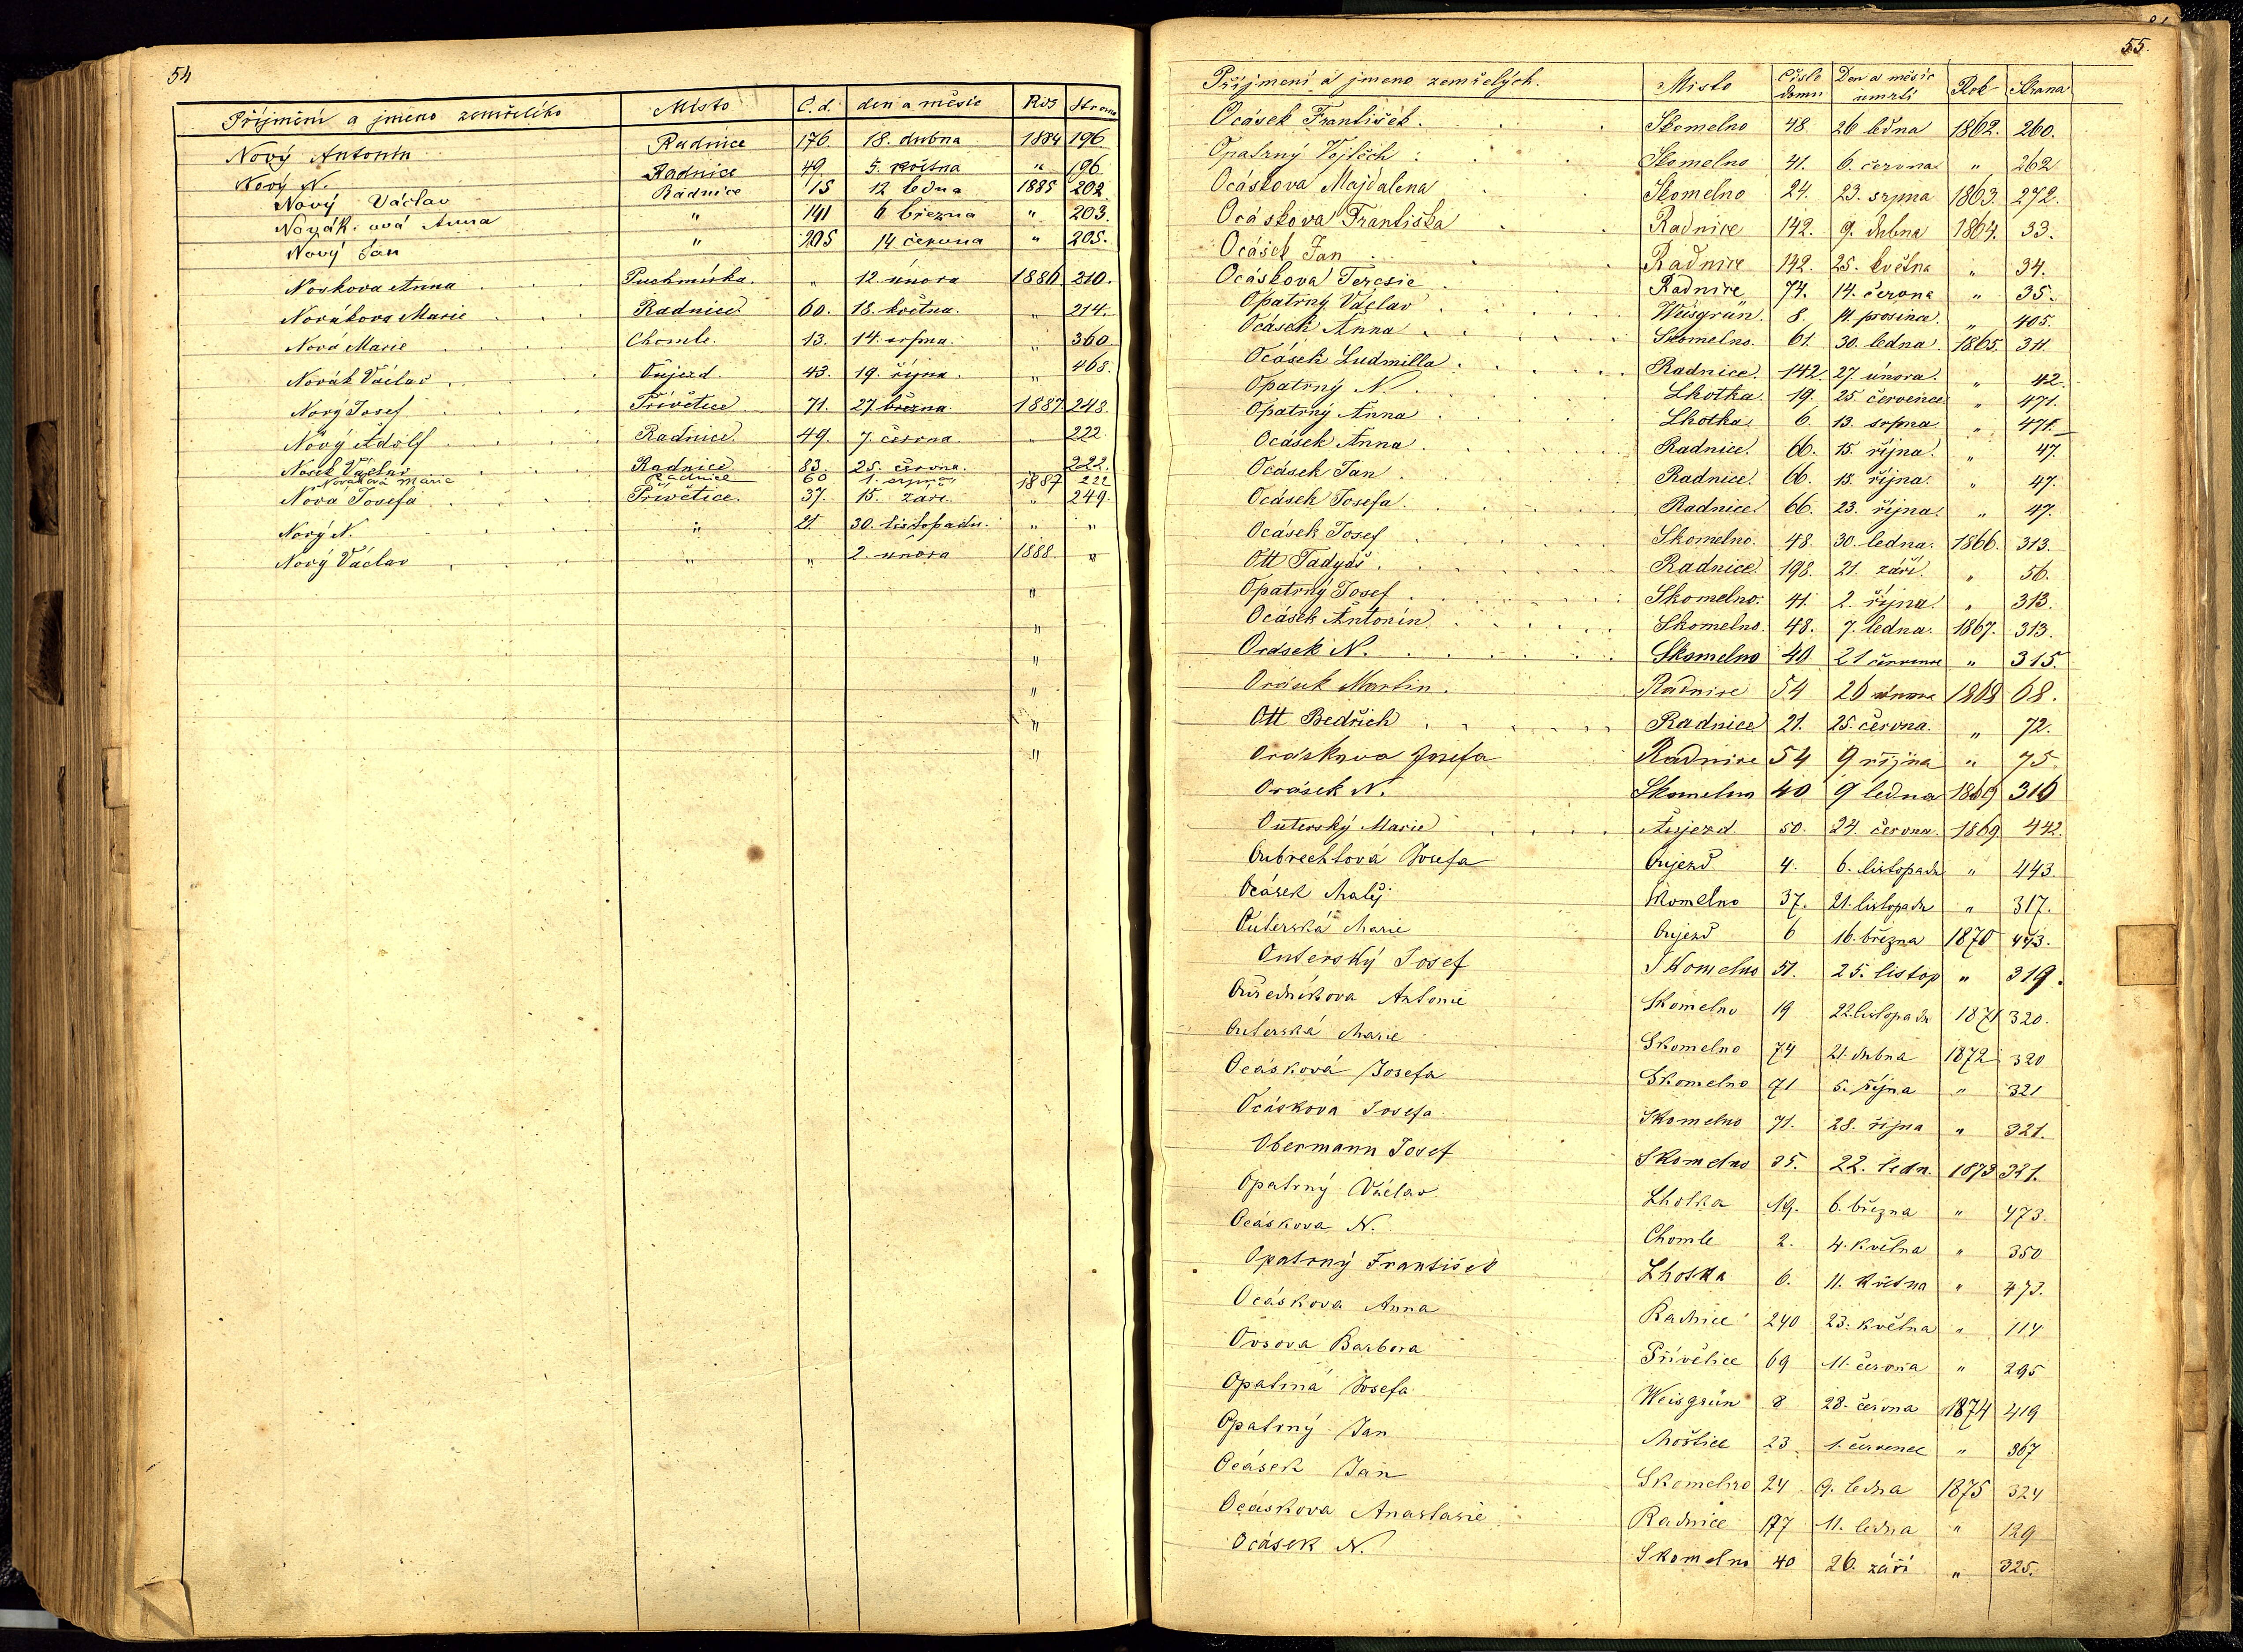 54
Příjmění a jméno zemřelého Místo Č. d. den a měsíc Rok Strana
Nový Antonín Radnice 176. 18. dubna 1884 196
Nový N. Radnice 49 5. května " 196
Nový Václav Radnice 15 12 ledna 1885 202
Novák.ová Anna " 141 6 března " 203.
Nový Jan " 205 14 června " 205.
Noskova Anna Puchmírka. " 12. února 1886. 210.
Novákova Marie Radnice 60. 18. května. " 214.
Nová Marie Chomle. 13. 14. srpna. " 360.
Novák Václav Oujezd. 43. 19. října. " 468.
Nový Josef Přívětice 71. 27. března. 1887 248.
Nový Adolf Radnice. 49. 7. června. " 222.
Nosek Václav Radnice. 83. 25. června. 222.
Nováková Marie Radnice 60 1. srpna 1887 222
Nová Josefa Přívětice. 37. 15. září. " 249.
Nový N. " 21. 30. listopadu. " "
Nový Václav " " 2. února 1888. "
"
"
"
"
"
"
55.
Příjmení a jmeno zemřelých. Misto Čislo domu Den a měsíc úmrtí Rok Strana
Ocásek František. Skomelno 48. 26 ledna 1862. 260.
Opatrný Vojtěch Skomelno 41. 6. června " 262
Ocáskova Majdalena Skomelno 24. 23. srpna 1863. 272.
Ocáskova Františka Radnice 142. 9. dubna 1864. 33.
Ocásek Jan Radnice 142. 25. května " 34.
Ocáskova Terezie Radnice 74. 14. června " 35.
Opatrný Václav Weisgrün. 8. 14. prosince. " 405.
Ocásek Anna Skomelno. 61. 30. ledna. 1865. 311.
Ocásek Ludmilla. Radnice. 142. 27. února. " 42.
Opatrný N. Lhotka. 19. 25. července " 471.
Opatrný Anna Lhotka 6. 13. srpna. " 471.
Ocásek Anna Radnice. 66. 15. října. " 47.
Ocásek Jan Radnice. 66. 15. října. " 47.
Ocásek Josefa. Radnice. 66. 23. října. " 47.
Ocásek Josef Skomelno. 48. 30. ledna. 1866. 313.
Ott Tadyáš. Radnice. 198. 21. září. " 56.
Opatrný Josef Skomelno. 41. 2. října. " 313.
Ocásek Antonín Skomelno. 48. 7. ledna. 1867. 313.
Ocásek N. Skomelno 40 21 července " 315.
Ocásek Martin. Radnice 54 26 února 1868 68.
Ott Bedřich Radnice 21. 25. června. " 72.
Ocáskova Josefa Radnice 54 9 října " 75.
Ocásek N. Skomelno 40 9 ledna 1869 316
Outerský Marie Aujezd. 50. 24. června. 1869 442.
Oubrechtová Josefa Oujezd 4. 6. listopadu " 443.
Ocásek Matěj Skomelno 37. 21. listopadu " 317.
Outerská Marie Oujezd 6 16. března 1870 443.
Outerský Josef Skomelno 51. 25. listop " 319.
Ouředníkova Antonie Skomelno 19 22. listopadu 1871 320.
Outerská Marie Skomelno 74 21. dubna 1872 320
Ocásková Josefa Skomelno 71 5. října " 321
Ocáskova Josefa Skomelno 71. 28. října " 321.
Obermann Josef Skomelno 35. 22. ledn. 1873 321.
Opatrný Václav Lhotka 19. 6. března " 473.
Ocáskova N. Chomle 2. 4. května " 350
Opatrný František Lhotka 6. 11. května " 473.
Ocáskova Anna Radnice 240 23. května " 114
Ovsova Barbora Přívětice 69 11. června " 295
Opatrná Josefa Weisgrün 8 28. června 1874 419
Opatrný Jan Moštice 23. 1. července " 367
Ocásek Jan Skomelno 24 9. ledna 1875 324
Ocáskova Anastasie Radnice 177 11. ledna " 129
Ocásek N. Skomelno 40 26. září " 325.